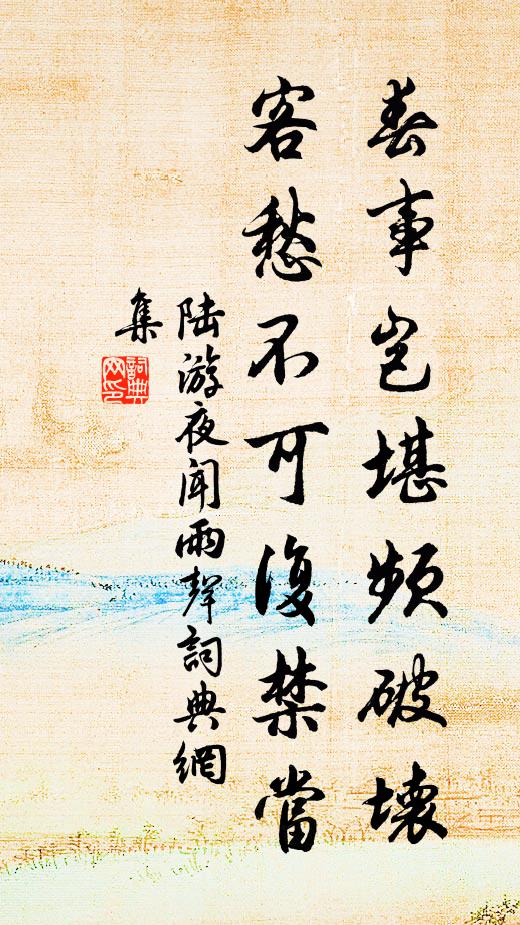 春事岂堪频破壞
客愁不可復禁當
陆游夜闻雨聲詞典網
集
詞典
网印